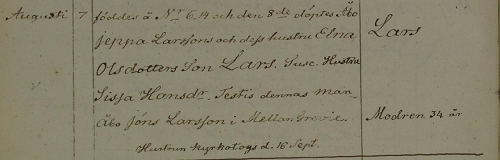 Augusti 7 föddes å Nr 6.14 och den 8de döptes Åbo Lars
jeppa Larssons och dess hustru Elna
Olsdotters Son Lars. Susc. Hustru
Sissa Hansdr. Testis dennas man
Åbo Jöns Larsson i Mellan Grevie. Modren 34 år
Hustrun kyrkotogs d. 16 Sept.